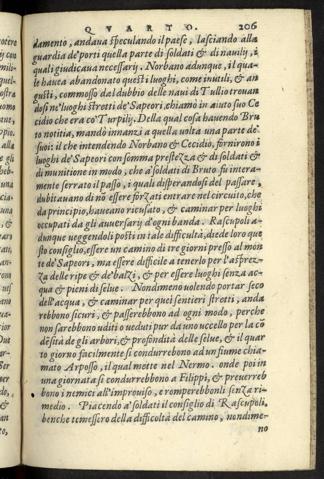 QVARTO. 206
damento, andaua speculando il paese, lasciando alla
guardia de' porti quella parte di soldati & di nauilij, i
quali giudicaua necessarij. Norbano adunque, il qua-
le haueа abandonato questi luoghi, come inutili, & an
gusti, commosso dal dubbio delle naui di Tullio trouan
dosi ne' luoghi stretti de' Sapeori, chiamò in aiuto suo Ce
cidio che era co' Turpilij. Della qual cosa hauendo Bru
to notitia, mandò innanzi a quella uolta una parte de'
suoi: il che intendendo Norbano & Cecidio, fornirono i
luoghi de' Sapeori con somma prestezza & di soldati &
di munitione in modo, che a' soldati di Bruto fu intera-
mente serrato il passo, i quali disperandosi del passare,
dubitauano di nõ essere forzati entrare nel circuito, che
da principio, haueano ricusato, & caminar per luoghi
occupati da gli auuersarij d'ogni banda. Rascupoli a-
dunque ueggendoli posti in tale difficultà, diede loro que
sto consiglio, essere un camino di tre giorni presso al mon
te de' Sapeori, ma essere difficile a tenerlo per l'asprez-
za delle ripe & de' balzi, & per essere luoghi senza ac-
qua & pieni di selue. Nondimeno uolendo portar seco
dell'acqua, & caminar per quei sentieri stretti, anda
rebbono sicuri, & passerebbono ad ogni modo, perche
non sarebbono uditi o ueduti pur da uno uccello per la cõ
dẽsità de gli arbori, & profondità delle selue, & il quar
to giorno facilmente si condurrebono ad un fiume chia-
mato Arposso, il qual mette nel Nermo. onde poi in
una giornata si condurrebbono a Filippi, & preuerreb
bono i nemici all'improuiso, e romperebbonli senza ri-
medio. Piacendo a' soldati il consiglio di Rascupoli,
benche temessero della difficoltà del camino, nondime-
no